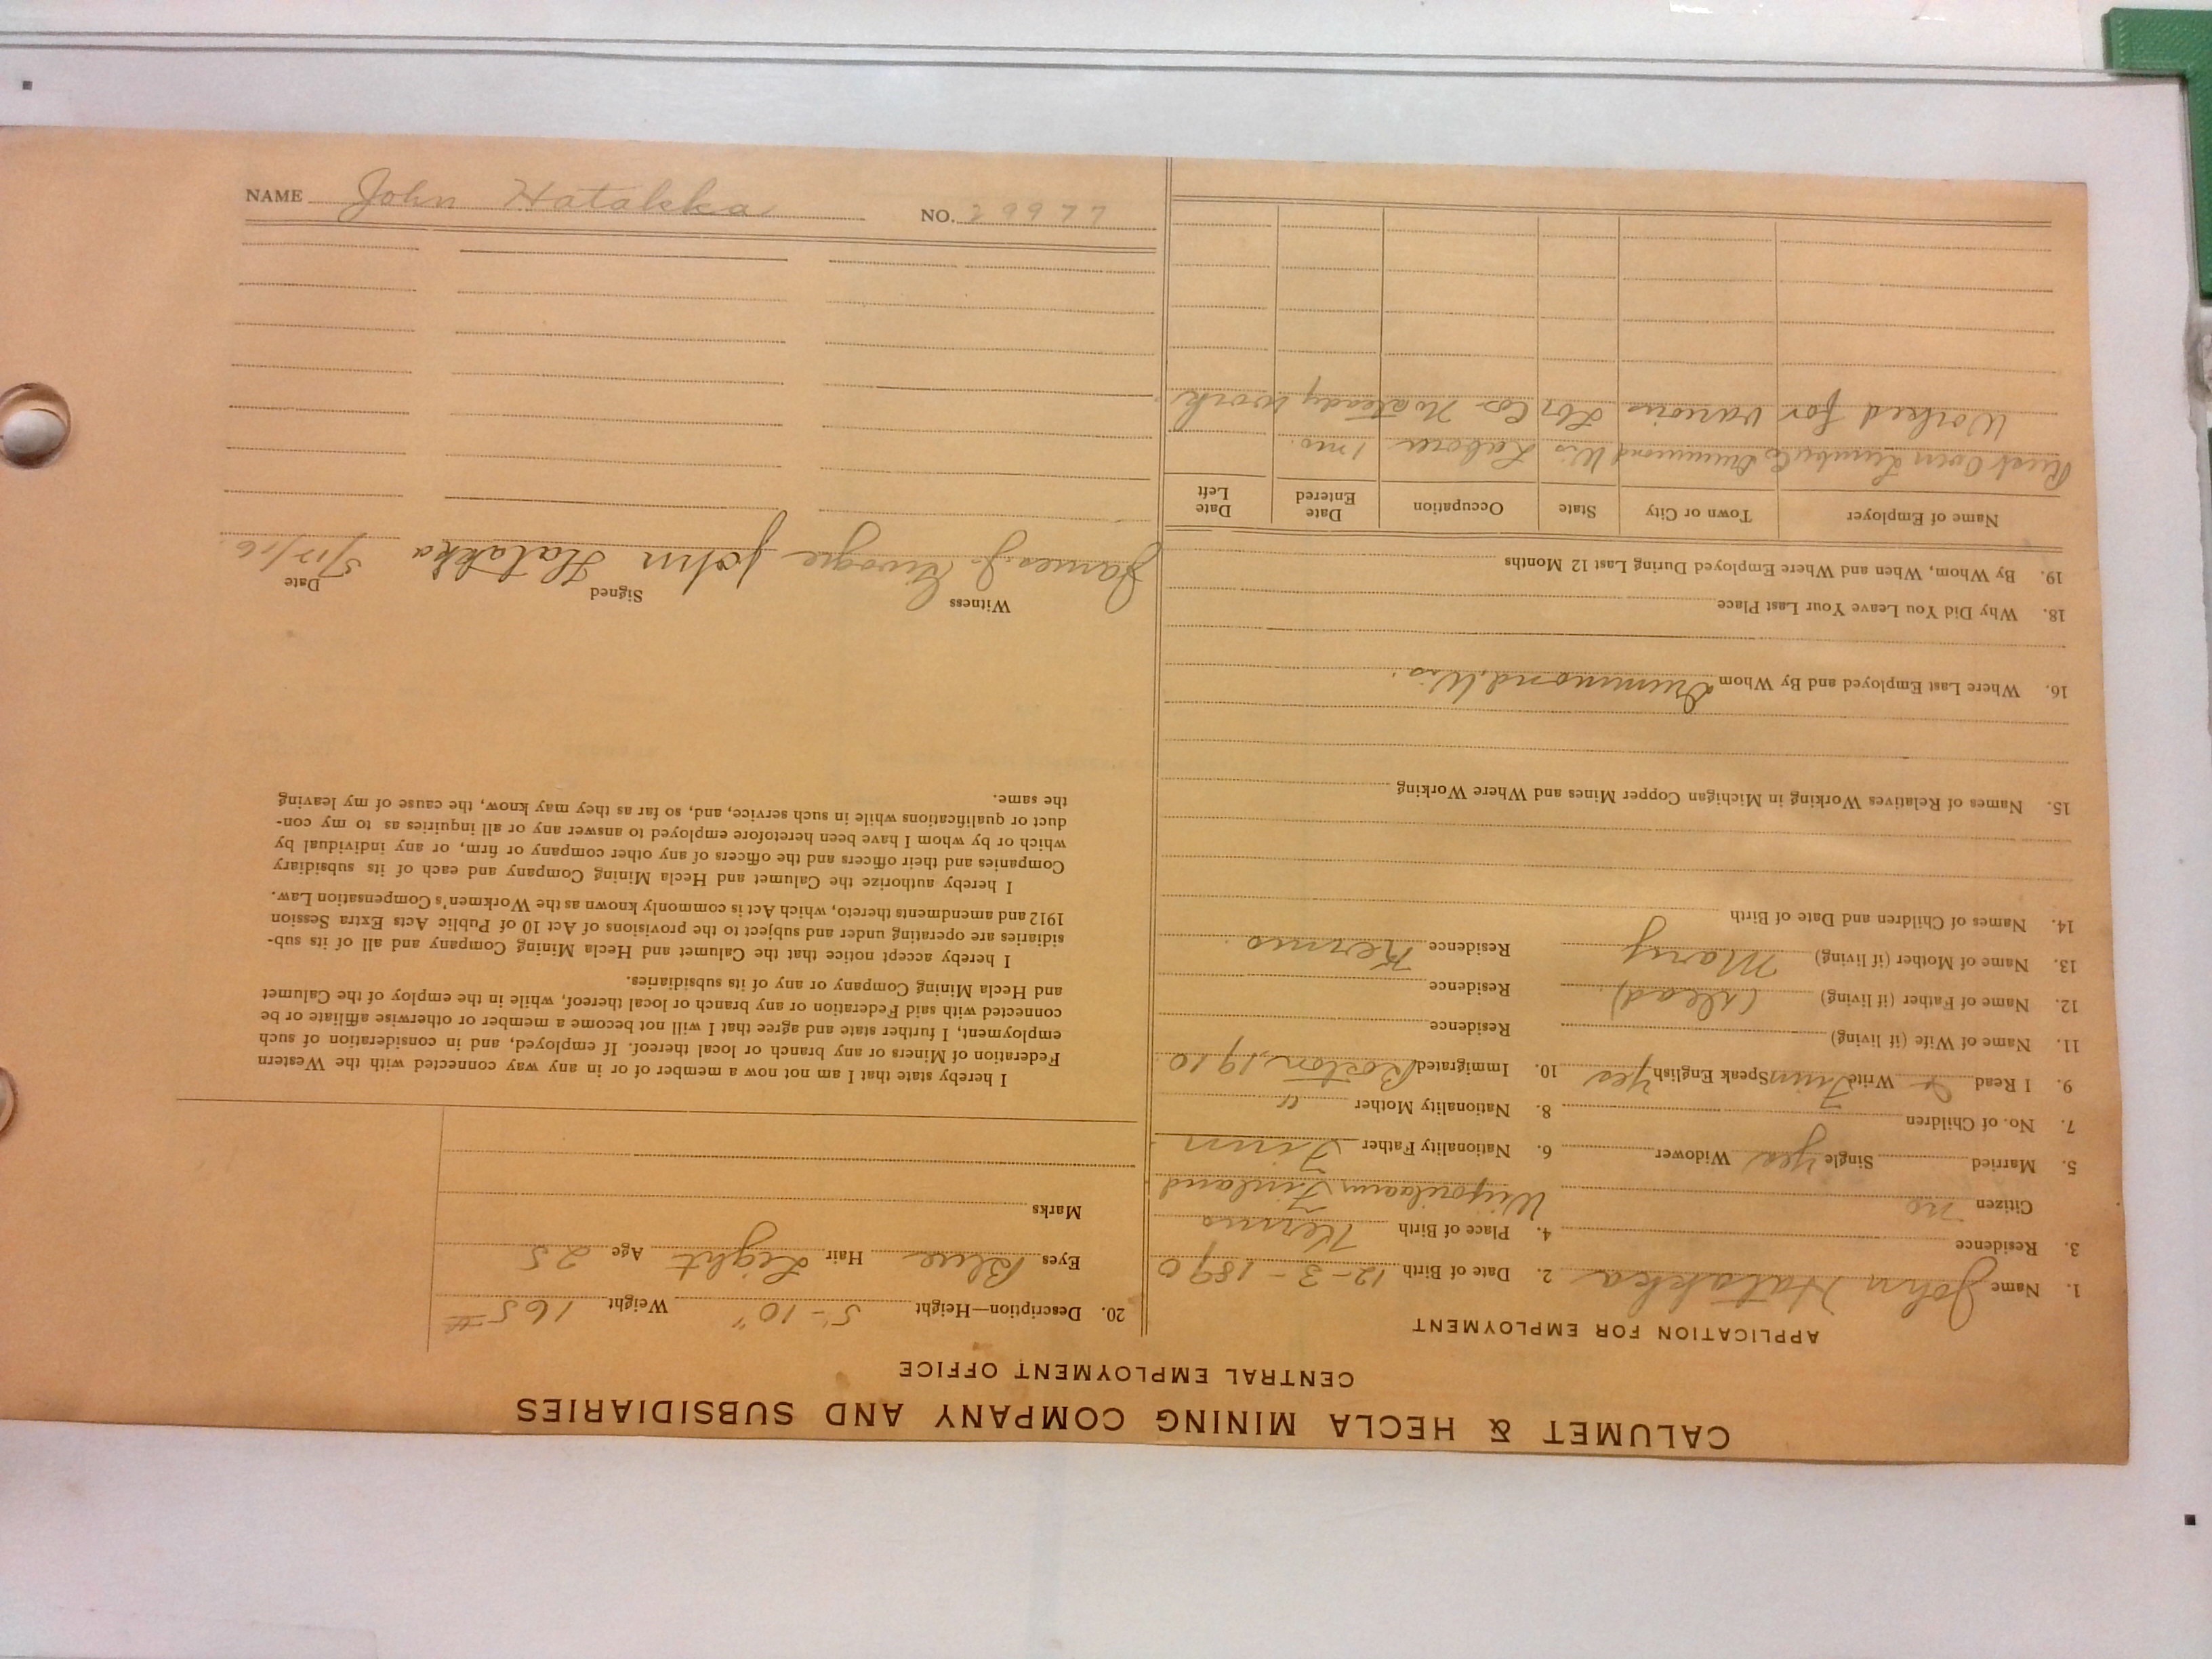 CALUMET & HECLA MINING COMPANY AND SUBSIDIARIES
CENTRAL EMPLOYMENT OFFICE
APPLICATION FOR EMPLOYMENT
1. Name John Hatakka 2. Date of Birth 12-3-1890
3. Residence 4. Place of Birth Kermo
Citizen no Finland
5. Married Single Yes Widower 6. Nationality Father Finn
7. No. of Children 8. Nationality Mother "
9. I Read Write Finn Speak English Yes 10. Immigrated Boston, 1910
11. Name of Wife (if living) Residence
12. Name of Father (if living) (dead) Residence
13. Name of Mother (if living) Mary Residence Kermo
14. Names of Children and Date of Birth
15. Names of Relatives Working in Michigan Copper Mines and Where Working
16. Where Last Employed and By Whom Drummond, Wis.
18. Why Did You Leave Your Last Place
19. By Whom, When and Where Employed During Last 12 Months
Name of Employer Town or City State Occupation Date Entered Date Left
Lumber Co Drummond Wis Laborer 1 mo.
Worked for various Lbr Cos No steady work
20. Description—Height 5'-10" Weight 165#
Eyes Blue Hair Light Age 25
Marks
I hereby state that I am not now a member of or in any way connected with the Western
Federation of Miners or any branch or local thereof. If employed, and in consideration of such
employment, I further state and agree that I will not become a member or otherwise affiliate or be
connected with said Federation or any branch or local thereof, while in the employ of the Calumet
and Hecla Mining Company or any of its subsidiaries.
I hereby accept notice that the Calumet and Hecla Mining Company and all of its sub-
sidiaries are operating under and subject to the provisions of Act 10 of Public Acts Extra Session
1912 and amendments thereto, which Act is commonly known as the Workmen's Compensation Law.
I hereby authorize the Calumet and Hecla Mining Company and each of its subsidiary
Companies and their officers and the officers of any other company or firm, or any individual by
which or by whom I have been heretofore employed to answer any or all inquiries as to my con-
duct or qualifications while in such service, and, so far as they may know, the cause of my leaving
the same.
Witness Signed Date
James J. John Hatakka 5/17/16.
NAME John Hatakka NO. 29977